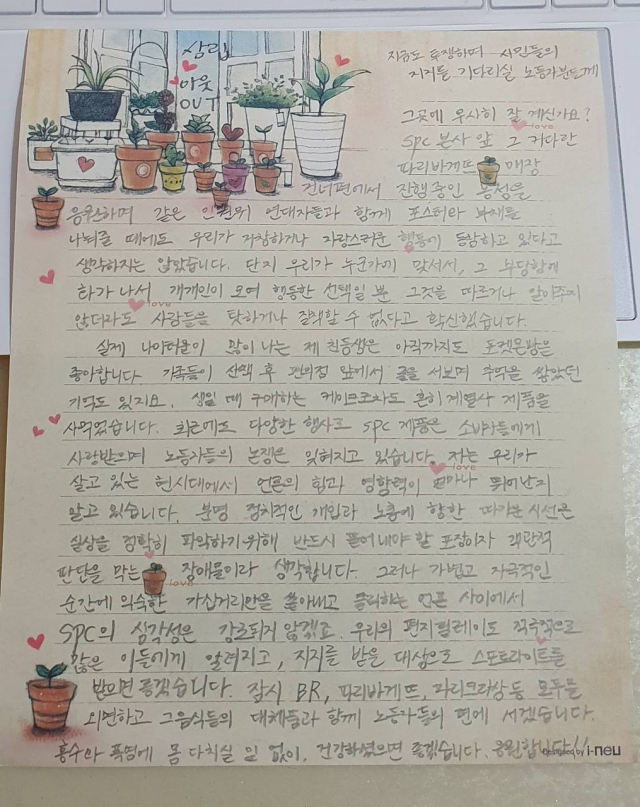 삼립
아웃
OUT
지금도 투쟁하며 시민들의
지지를 기다리실 노동자분들께
그곳에 무사히 잘 계신가요?
SPC 본사 앞 그 커다란
파리바게뜨 매장
건너편에서 진행 중인 농성을
응원하며 같은 연대자들과 함께 포스터와 부채를
나눠줄 때에도 우리가 거창하거나 자랑스러운 행동에 동참하고 있다고
생각하지는 않았습니다. 단지 우리가 누군가에 맞서서, 그 부당함에
타가 나서 개개인이 모여 행동한 선택일 뿐 그것을 따르거나 알아주지
않더라도 사람들을 탓하거나 질책할 수 없다고 확신했습니다.
실제 나이터울이 많이 나는 제 친동생은 아직까지도 포켓몬빵을
좋아합니다. 가족들이 산책 후 편의점 앞에서 줄을 서보며 추억을 쌓았던
기억도 있지요. 생일 때 구매하는 케이크조차도 흔히 계열사 제품을
사먹었습니다. 최근에도 다양한 행사로 SPC 제품은 소비자들에게
사랑받으며 노동자들의 논쟁은 잊혀지고 있습니다. 저는 우리가
살고 있는 현시대에서 언론의 힘과 영향력이 얼마나 뛰어난지
알고 있습니다. 분명 정치적인 개입과 노총에 향한 따가운 시선은
실상을 정확히 파악하기 위해 반드시 뜯어내야 할 포장이자 객관적
판단을 막는 장애물이라 생각합니다. 그러나 가볍고 자극적인
순간에 익숙한 가십거리만을 쏟아내고 클릭하는 언론 사이에서
SPC의 심각성은 강조되지 않겠죠. 우리의 편지 릴레이도 적극적으로
많은 이들에게 알려지고, 지지를 받을 대상으로 스포트라이트를
받으면 좋겠습니다. 잠시 BR, 파리바게뜨, 파리크라상 등 모두를
외면하고 그 음식들의 대체품과 함께 노동자들의 편에 서겠습니다.
홍수와 폭염에 몸 다치실 일 없이, 건강하셨으면 좋겠습니다. 응원합니다!!
Designed by i-neu